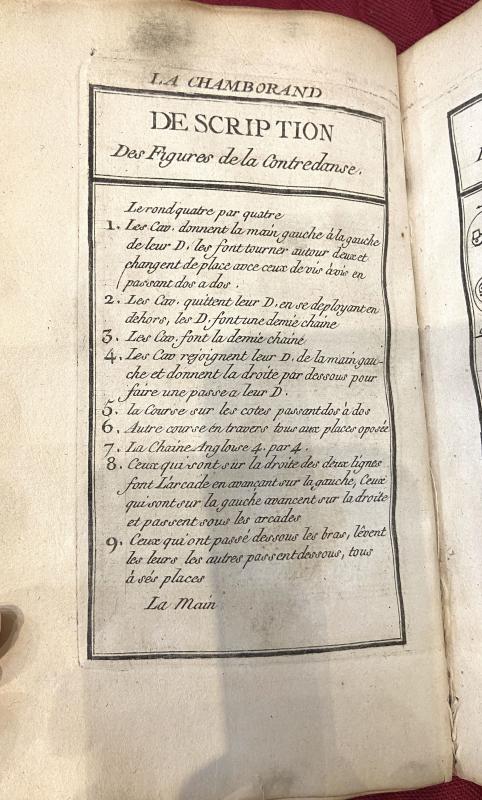 LA CHAMBORAND
DESCRIPTION
Des Figures de la Contredanse.
Le rond quatre par quatre
1. Les Cav. donnent la main gauche à la gauche
de leur D. les font tourner autour deux et
changent de place avce ceux de vis à vis en
passant dos a dos.
2. Les Cav. quittent leur D. en se deployant en
dehors, les D. font une demie chaine
3. Les Cav. font la demie chaine
4. Les Cav rejoignent leur D. de la main gau-
che et donnent la droite par dessous pour
faire une passe a leur D.
5. la Course sur les cotes passant dos à dos
6. Autre course en travers tous aux places oposée
7. La Chaine Angloise 4. par 4.
8. Ceux qui sont sur la droite des deux lignes
font L'arcade en avançant sur la gauche, Ceux
qui sont sur la gauche avencent sur la droite
et passent sous les arcades
9. Ceux qui ont passé dessous les bras, lêvent
les leurs les autres passent dessous, tous
à sés places
La Main